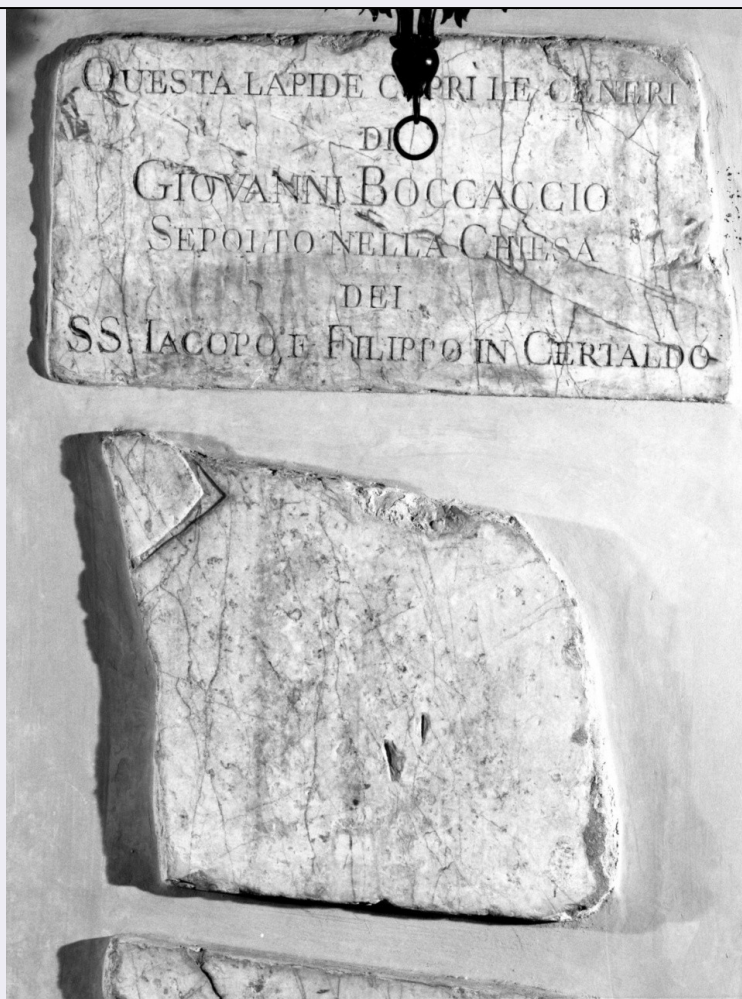 QUESTA LAPIDE COPRÌ LE CENERI
DI
GIOVANNI BOCCACCIO
SEPOLTO NELLA CHIESA
DEI
SS. IACOPO E FILIPPO IN CERTALDO